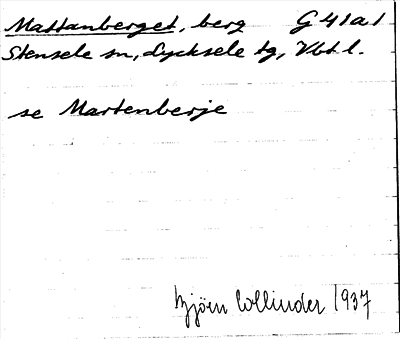 Mattanberget, berg G 41 a 1
Stensele sn, Lycksele tg, Vbt l.
se Martenberje
Björn Collinder 1937